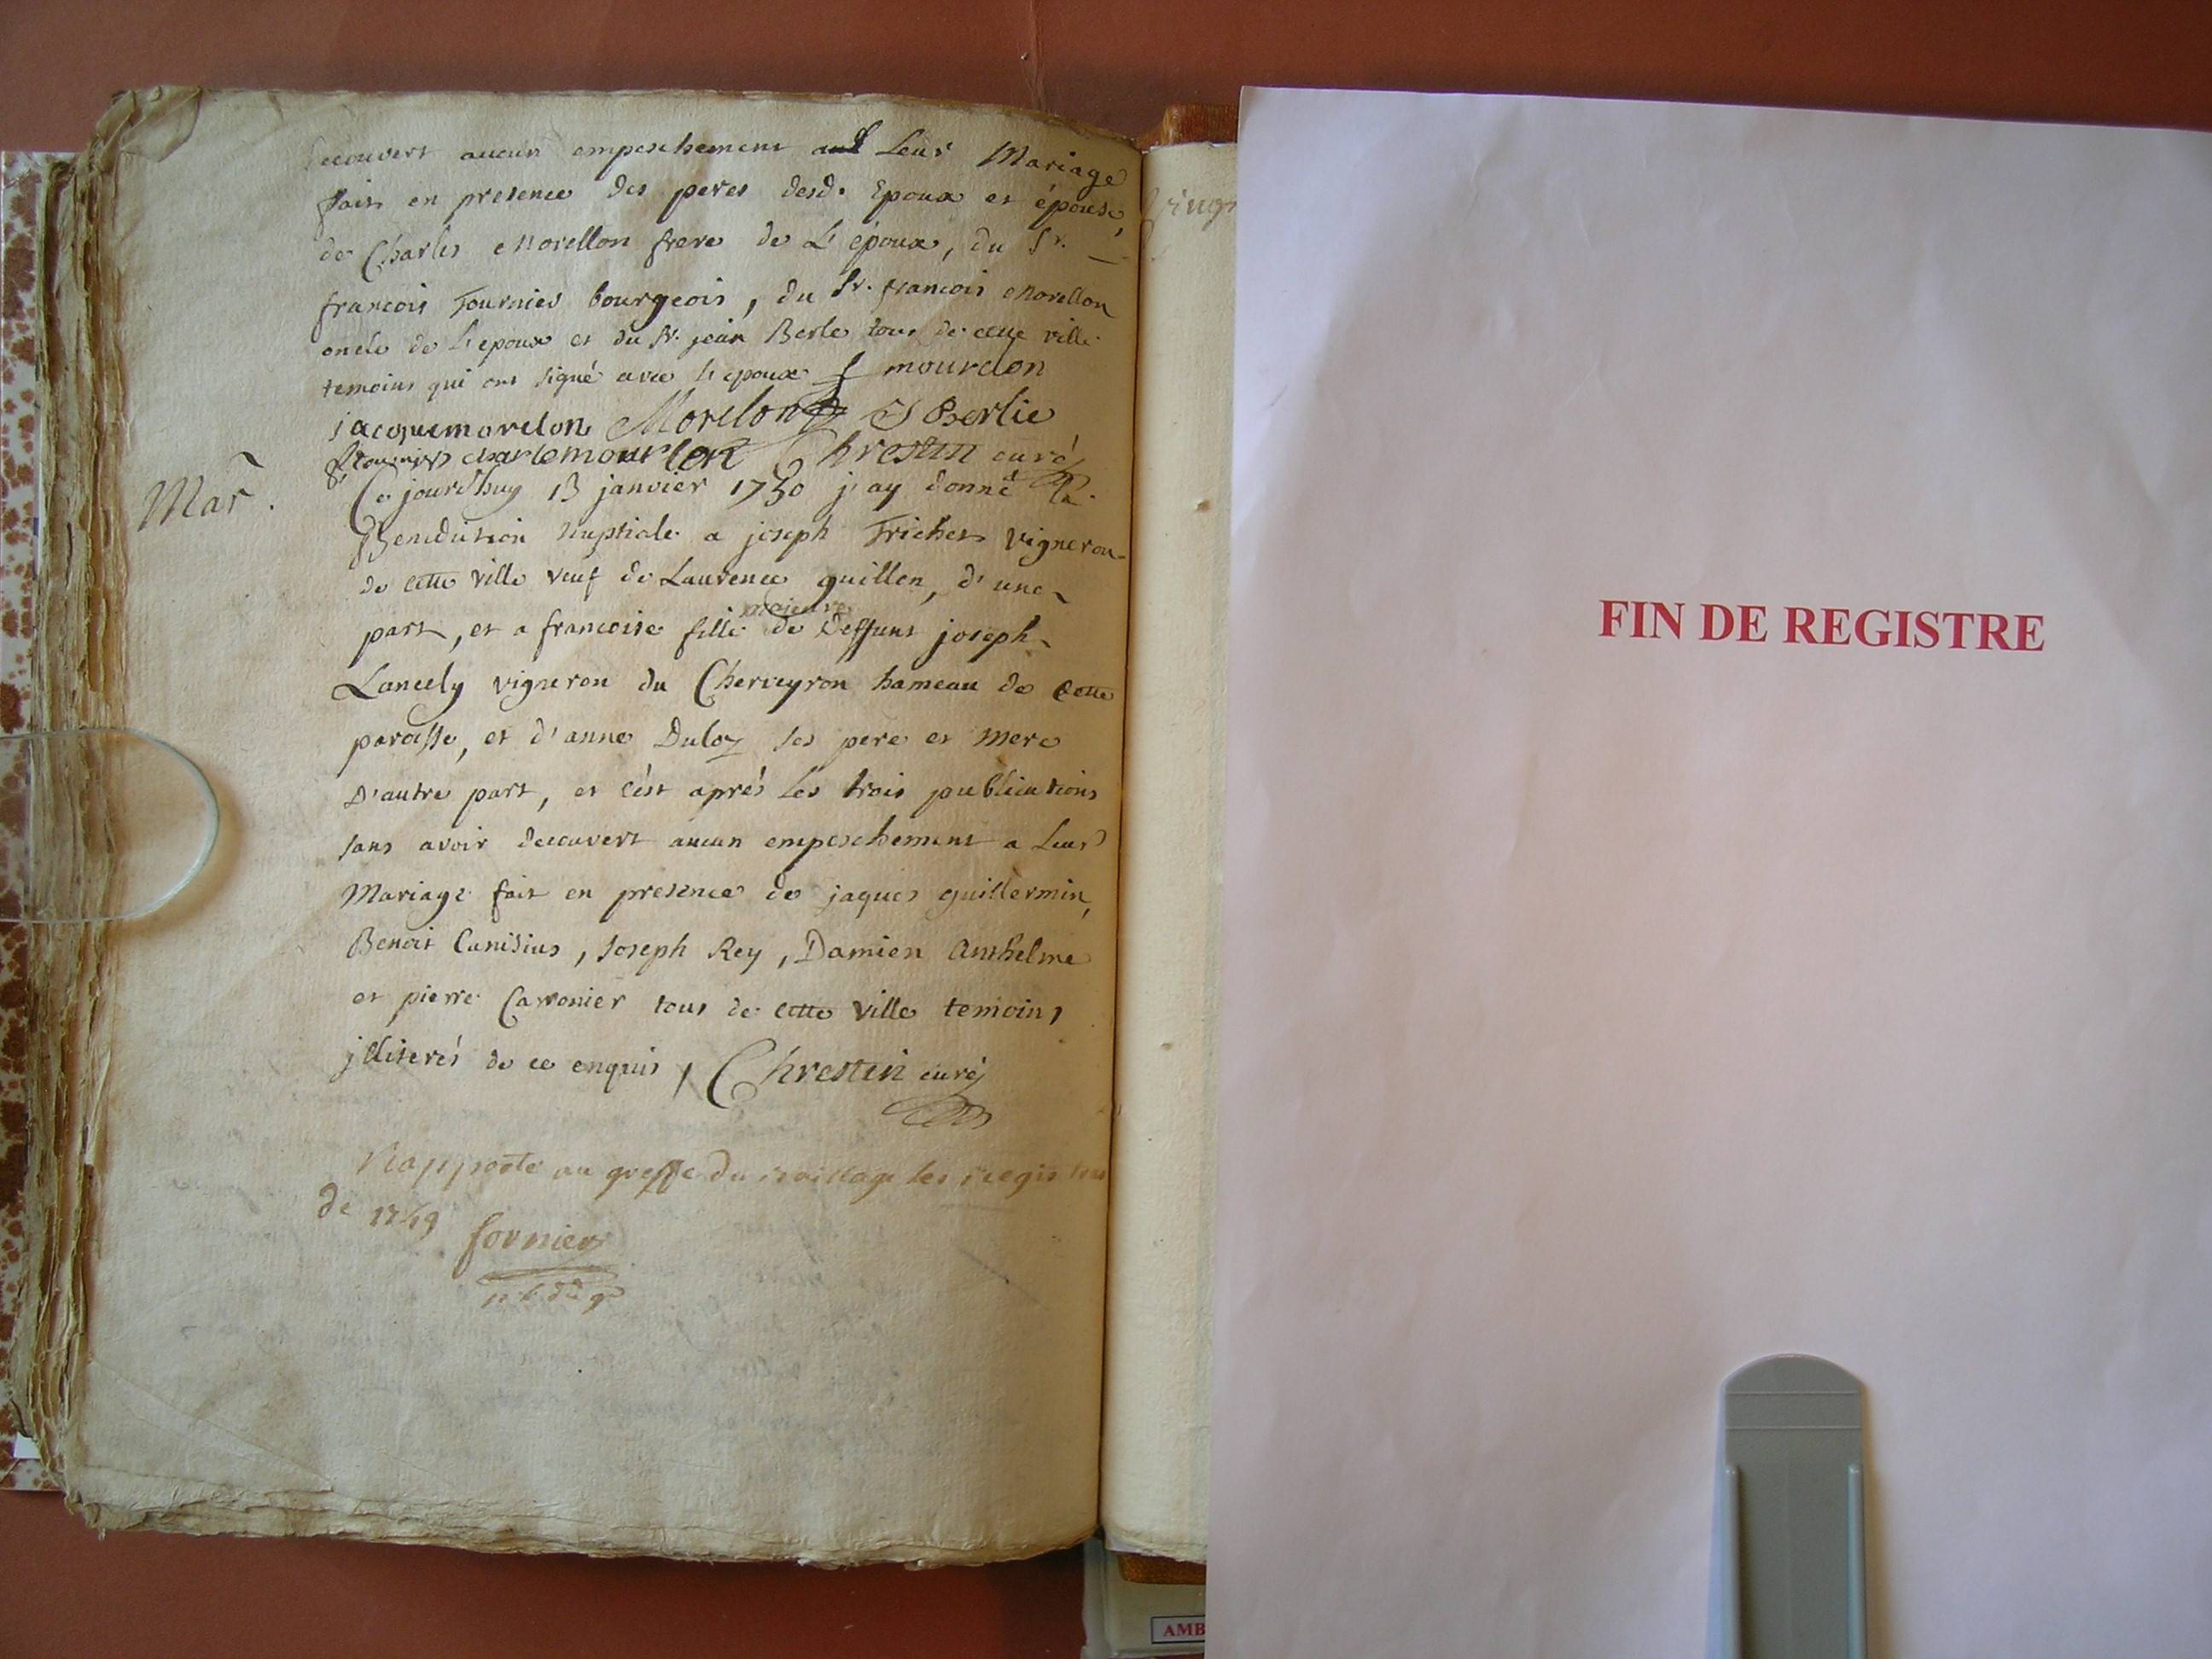 decouvert aucun empeschement a Leur Mariage
fait en presence des peres desd. Epoux et épouse,
de Charles Morellon frere de L'époux, du Sr.
francois Tournier bourgeois, du Sr. francois Morellon
oncle de L'epoux et du Sr. jean Berle tous de cette ville
temoins qui ont signé avec l'epoux f mourelon
jacquemorelon Morelon J Berlie
charlemourlon Chrestin curé
Mar.
Ce jourd'huy 13 janvier 1750 j'ay donné la
Benediction nuptiale a joseph Trichet vigneron
de cette ville veuf de Laurence guillen, d'une
majeure
part, et a francoise fille de deffunt joseph
Lancely vigneron du Cherveyron hameau de cette
paroisse, et d'anne Duloz ses pere et mere
D'autre part, et c'ést aprés Les trois publications
sans avoir decouvert aucun empeschement a Leur
Mariage fait en presence de jaques guillermin,
Benoit Canisius, Joseph Rey, Damien Anthelme
et pierre Carronier tous de cette ville temoins
jlliterés de ce enquis, Chrestin curé
Rapporté au greffe du Bailliage les Registres
de 1749 fornier
ving
FIN DE REGISTRE
AMB